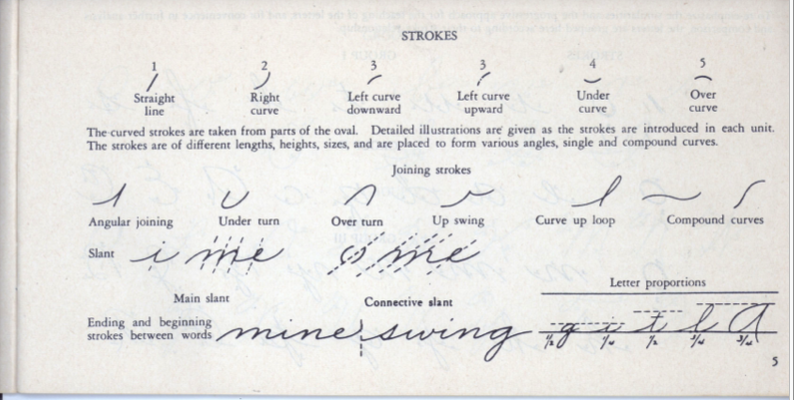 STROKES
1 2 3 3 4 5
Straight line Right curve Left curve downward Left curve upward Under curve Over curve
The curved strokes are taken from parts of the oval. Detailed illustrations are given as the strokes are introduced in each unit.
The strokes are of different lengths, heights, sizes, and are placed to form various angles, single and compound curves.
Joining strokes
Angular joining Under turn Over turn Up swing Curve up loop Compound curves
Slant i me o me
Letter proportions
Main slant Connective slant
Ending and beginning strokes between words mine swing g i t l A
1/2 1/4 1/2 3/4 3/4
5